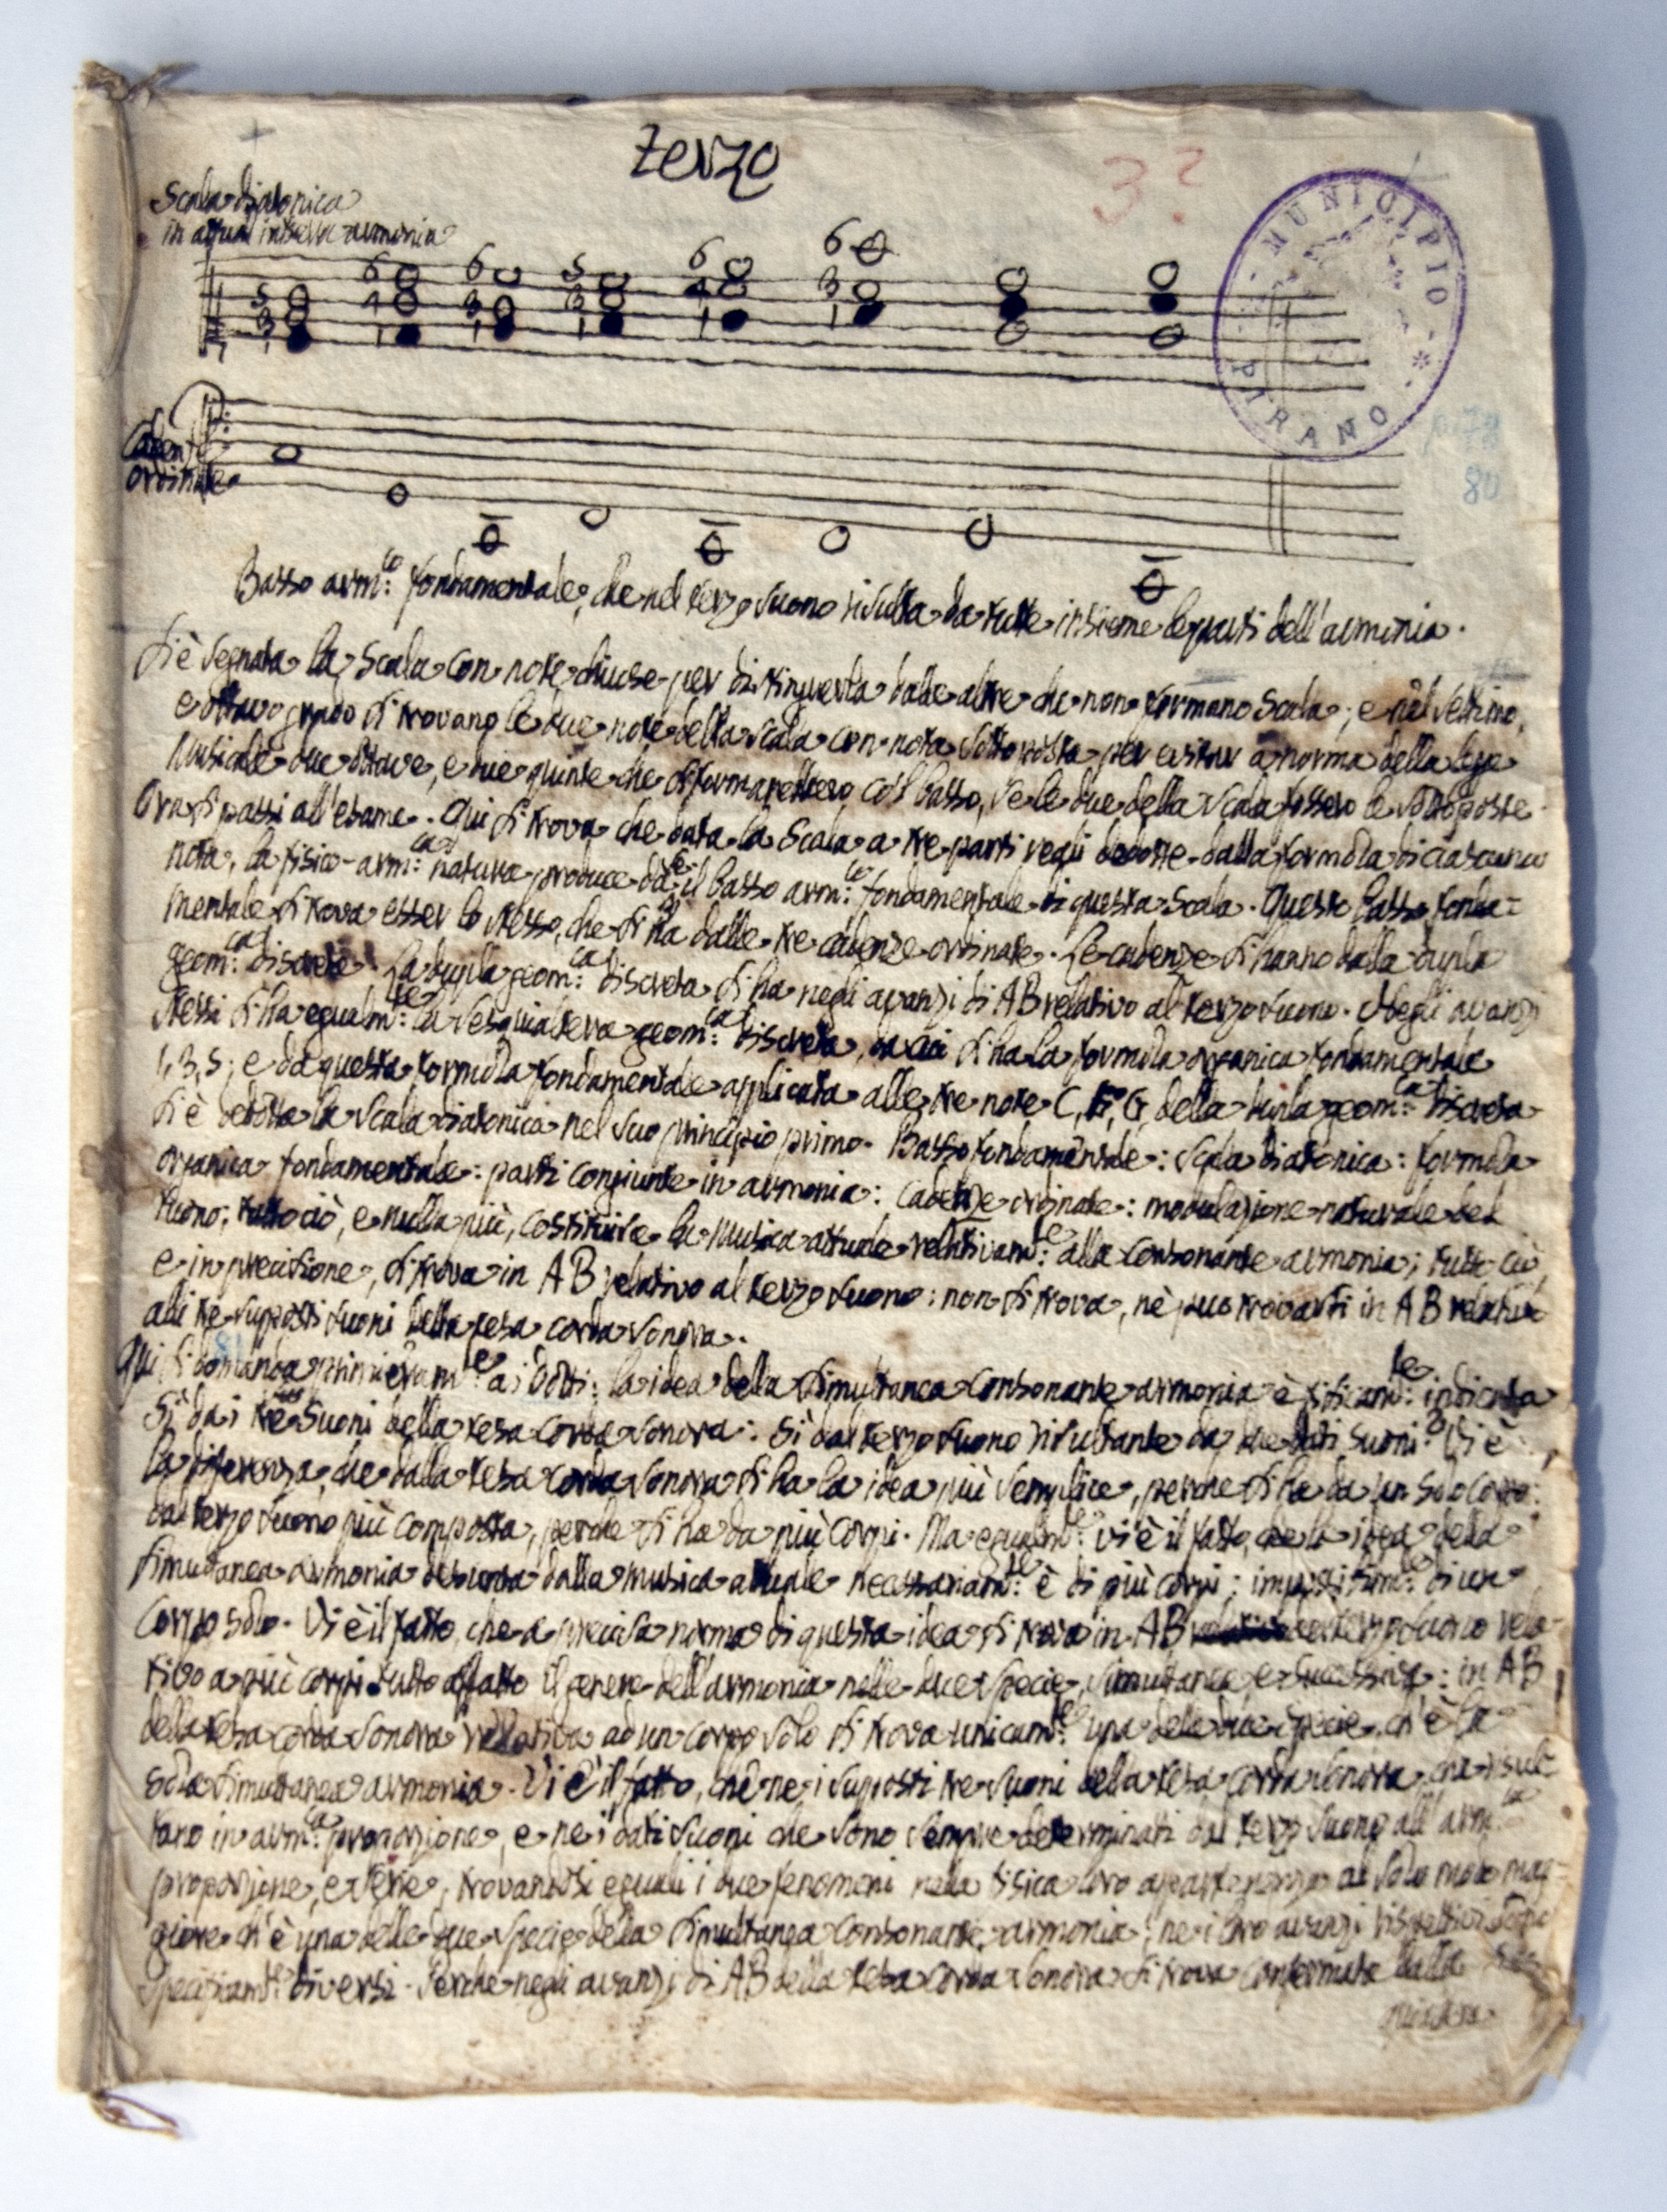 Terzo
3?
Scala diatonica
in attual intiera armonia
MUNICIPIO
PIRANO
5 6 6 5 6 6
3 4 3 3 4 3
1 1 1 1 1 1
80
Caden:
ordinate
Basso arm:co fondamentale, che nel terzo suono risulta da tutte insieme le parti dell'armonia.
Si è segnata la Scala con note chiuse per distinguerla dalle altre che non formano Scala; e nel settimo,
e ottavo grado si trovano le due note della scala con nota sottoposta per evitar a norma della lege
Musicale due ottave, e due quinte che si formarebbero col basso, se le due della scala fossero le sottoposte.
Ora si passi all'esame. Qui si trova che data la Scala a tre parti reali dedotte dalla formola di ciascuna
nota, la fisico-arm:ca natura produce da se il basso arm:co fondamentale di questa Scala. Questo basso fonda=
mentale si trova esser lo stesso, che si ha dalle tre cadenze ordinate. Le cadenze si hanno dalla dupla
geom:ca discreta. La dupla geom:ca discreta si ha negli avanzi di AB relativo al terzo suono. Negli avanzi
stessi si ha egualm:te la sesquialtera geom:ca discreta, da cui si ha la formola organica fondamentale
1, 3, 5; e da questa formola fondamentale applicata alle tre note C, F, G, della dupla geom:ca discreta
si è dedotta la scala diatonica nel suo principio primo. Basso fondamentale: scala diatonica: formola
organica fondamentale: parti congiunte in armonia: Cadenze ordinate: modulazione naturale del
tuono: tutto ciò, e nulla più, costituisce la Musica attuale relativam:e alla consonante armonia; tutto ciò,
e in precisione, si trova in AB relativo al terzo suono: non si trova, nè può trovarsi in AB relativo
alli tre supposti suoni della tesa corda sonora.
Qui si domanda primieram:e ai Dotti: la idea della simultanea consonante armonia è fisicam:te indicata
sì da i tre suoni della tesa corda sonora: sì dal terzo suono risultante da due dati suoni? Vi è
la differenza, che dalla tesa corda sonora si ha la idea più semplice, perche si ha da un solo corpo:
dal terzo suono più composta, perche si ha da più corpi. Ma egualm:te vi è il fatto, che la idea della
simultanea armonia desunta dalla musica attuale necessariam:te è di più corpi; impossibilm:te di un
corpo solo. Vi è il fatto, che a precisa norma di questa idea si trova in AB terzo suono rela-
tivo a più corpi tutto affatto il genere dell'armonia nelle due specie, simultanea e successiva: in AB
della tesa corda sonora relativa ad un corpo solo si trova unicam:te una delle due specie, ch'è la
sola simultanea armonia. Vi è il fatto, che ne i supposti tre suoni della tesa corda sonora, che risul-
tano in arm:ca proporzione, e ne i dati suoni che sono sempre determinati dal terzo suono all'arm:ca
proporzione, e serie, trovandosi eguali i due fenomeni nella fisica loro appartenenza al solo modo mag-
giore ch'è una delle due specie della simultanea consonante armonia; ne i loro avanzi rispettivi sono
specificam:te diversi. Perche negli avanzi di AB della tesa corda sonora si trova confermata dalla